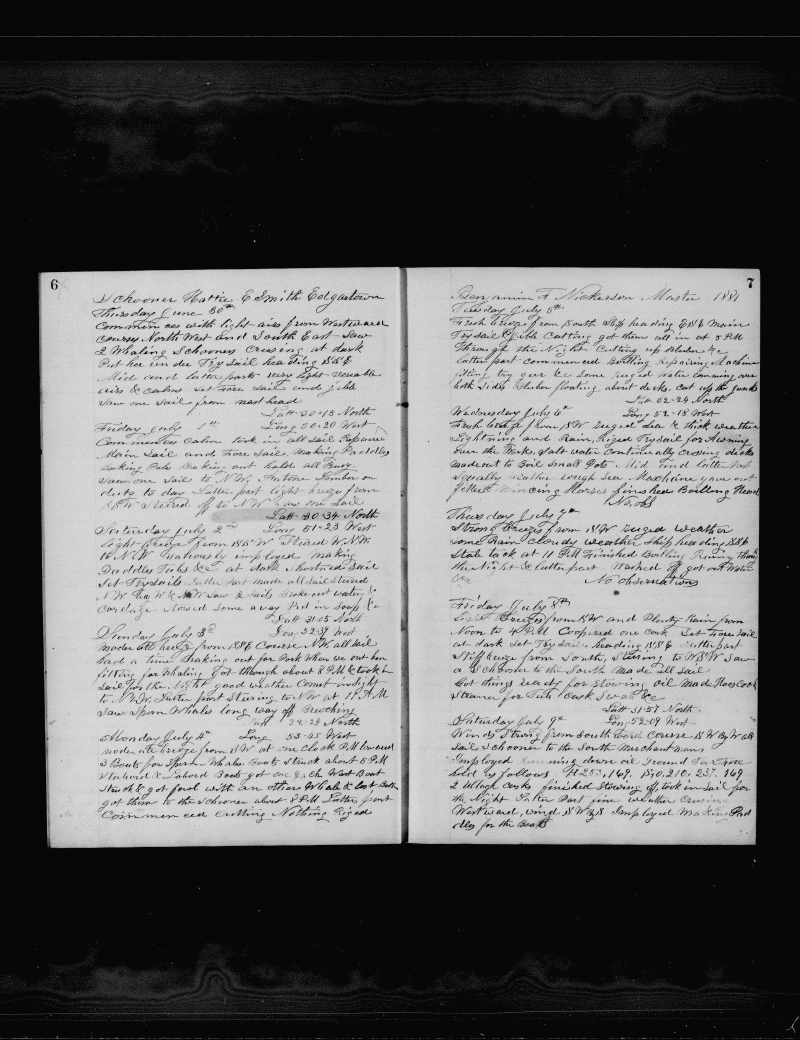 6
Schooner Hattie E Smith Edgartown
Thursday June 30th
Commences with light airs from Westward
courses North West and South East Saw
2 Whaling Schooners Cruising at dark
Put her under Try Sail heading
Mid and latter part very light variable
airs & calms set Fore Sail and Jibs
Saw one Sail from mast head
Latt 30-13 North
Friday July 1st Long 50-20 West
Commences calm took in all Sail Repaired
Main Sail and Fore Sail Making Paddles
out hold all
Saw one Sail to N.W. Antone Lombra on
deck to day Latter part light breeze from
Steered off to N.W. Saw one Sail
Latt 30-34 North
Saturday July 2nd Long 51-23 West
Light breeze from Steered W.N.W.
to N.W. Variously imployed Making
Paddles Tubs &c at dark Shortned Sail
Set Trysails Latter Part made all sail Steered
N.W. by W & N.W. Saw 2 Sails Broke out water &
Cordage Stowed some away Put in Soap &c
Latt 31-05 North
Sunday July 3d Long 52-39 West
moderate breeze from Course N.W. all sail
had a time Braking out for Pork When we out
fitting for Whaling got through about 8 PM & took in
Sail for the Night good weather Comet insight
to N.W. Latter part Steering to N.W. at 11 A.M
Saw Sperm Whales long way off Breching
Latt 32-24 North
Monday July 4th Long 53-45 West
moderate breeze from S.W at one Clock PM lowered
3 Boats for Sperm Whales Boats Struck about 5 PM
& Larbord Boats got one Each Wast Boat
Struck & got foul with an other Whale & lost Both
got them to the Schooner about 8 P.M Latter part
Commenced Cutting Nothing Riged
7
Benjamin F Nickerson Master 1881
Tuesday July 5th
Fresh breeze from South Ship heading Main
Trysail & Jibb Cutting got them all in at 5 P.M
Through the Night Cutting up Blubber &c
Latter part commenced Boiling Repairing Machine
fitting try gear &c Some Ruged water comming over
both sides Blubber floating about decks. Cut up the Junks
Latt 32-24 North
Wednesday July 6th Long 52-18 West
Fresh breeze from S.W Ruged Sea & thick weather
Lightning and Rain, Riged Trysail for Awning
over the Works, Salt water continually crossing decks
made out to Boil Small Pots Mid and latter Part
Squally weather rough Sea Machine gave out
Mincing Horses finished Boiling Head
No. Obs
Thursday July 7th
Strong Breezes from S.W Ruged weather
Some Rain Cloudy weather Ship heading
Stab tack at 11 P.M Finished Boiling
the Night & latter part Washed off got out Water
&c No observations
Friday July 8th
Breezes from S.W and Plenty Rain from
Noon to 4 P.M Coopered one Cask Set Fore Sail
at dark Set Try Sail heading latter part
Stiff breeze from South, Stering to W.S.W. Saw
a Schooner to the South Made all Sail
Got things ready for stowing oil made Hoes Cock
Stranor for Tub Cask Swab &c
Latt 31-57 North
Saturday July 9th Long 52-49 West
Winds Strong from Southward Course W By W all
Sail, Schooner to the South Merchantman
Imployed Running down oil Ground tier Fore
hold as follows
2 casks finished Stowing off, took in Sail for
the Night Latter Part fine weather Crusing
Westward, wind S.W By S Imployed Making Pad
dles for the Boats